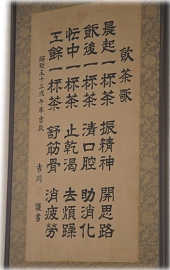 飲茶歌
晨起一杯茶 振精神 開思路
飯後一杯茶 清口腔 助消化
忙中一杯茶 止乾渇 去煩躁
工餘一杯茶 舒筋骨 消疲勞
昭和五十三戊午年 吉辰
吉川 書